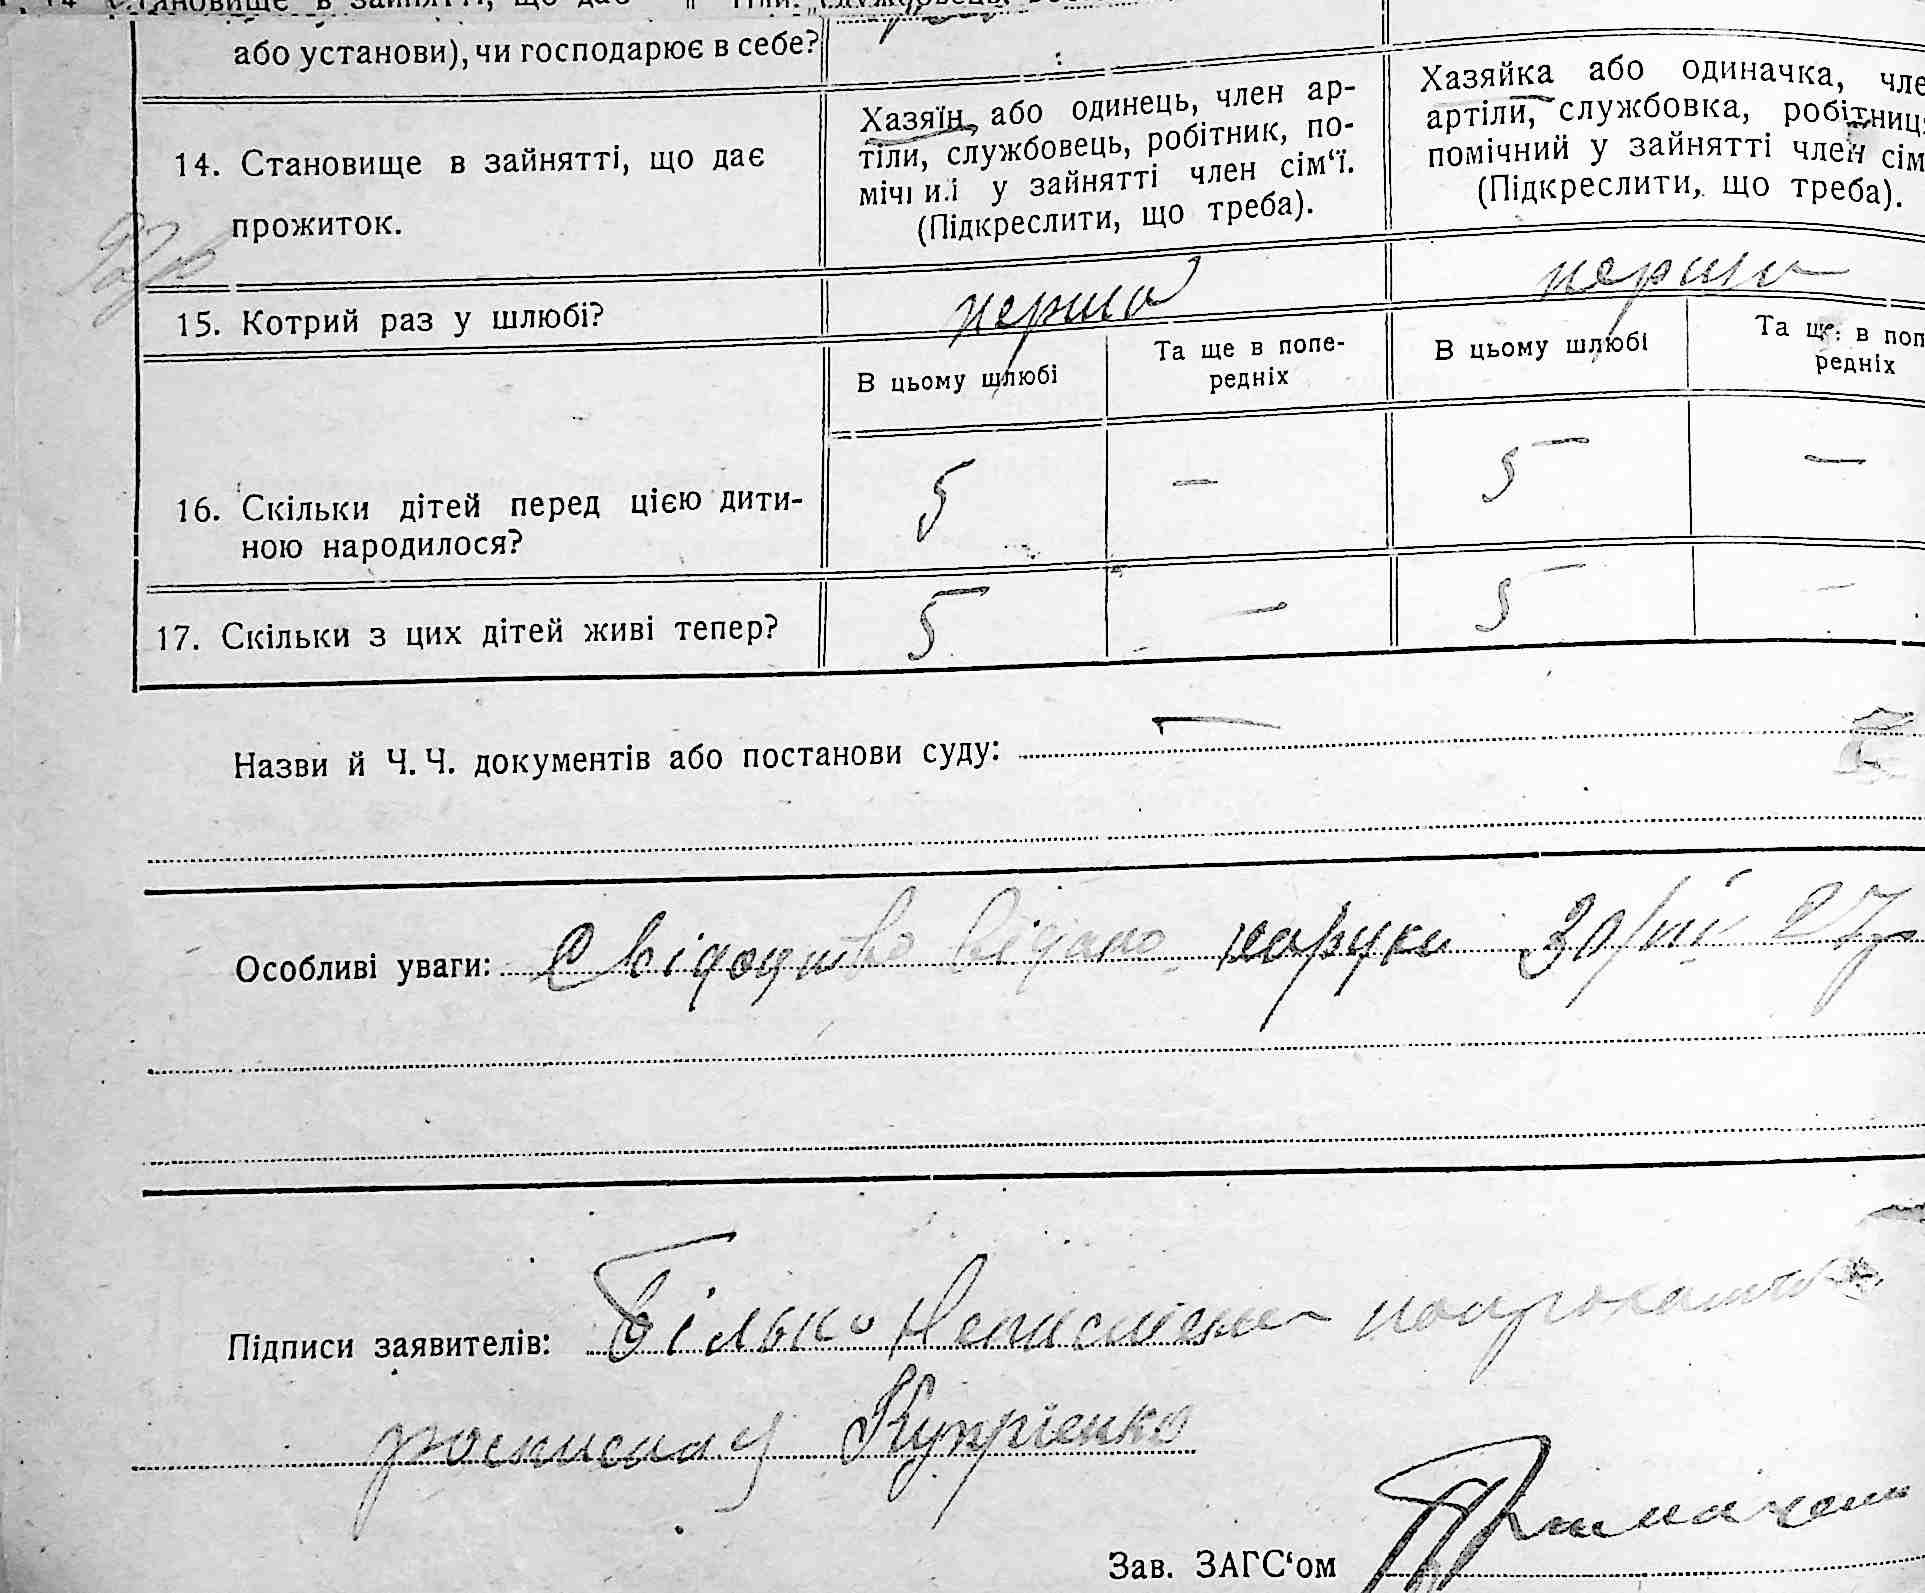 Становище в зайнятті, що дає
або установи), чи господарює в себе?
14. Становище в зайнятті, що дає
прожиток.
Хазяїн, або одинець, член ар-
тіли, службовець, робітник, по-
мічний у зайнятті член сім‘ї.
(Підкреслити, що треба).
Хазяйка або одиначка, чле
артіли, службовка, робітниц
помічний у зайнятті член сім
(Підкреслити, що треба).
15. Котрий раз у шлюбі?
перший
перший
В цьому шлюбі
Та ще в попе-
редніх
В цьому шлюбі
Та ще в поп
редніх
16. Скільки дітей перед цією дити-
ною народилося?
5 — 5 —
17. Скільки з цих дітей живі тепер?
5 — 5 —
Назви й Ч. Ч. документів або постанови суду: —
Особливі уваги: Свідоцтво видано на руки 30/VII 27р
Підписи заявителів: Білько Неписмени
росписался Купрієнко
Зав. ЗАГС‘ом